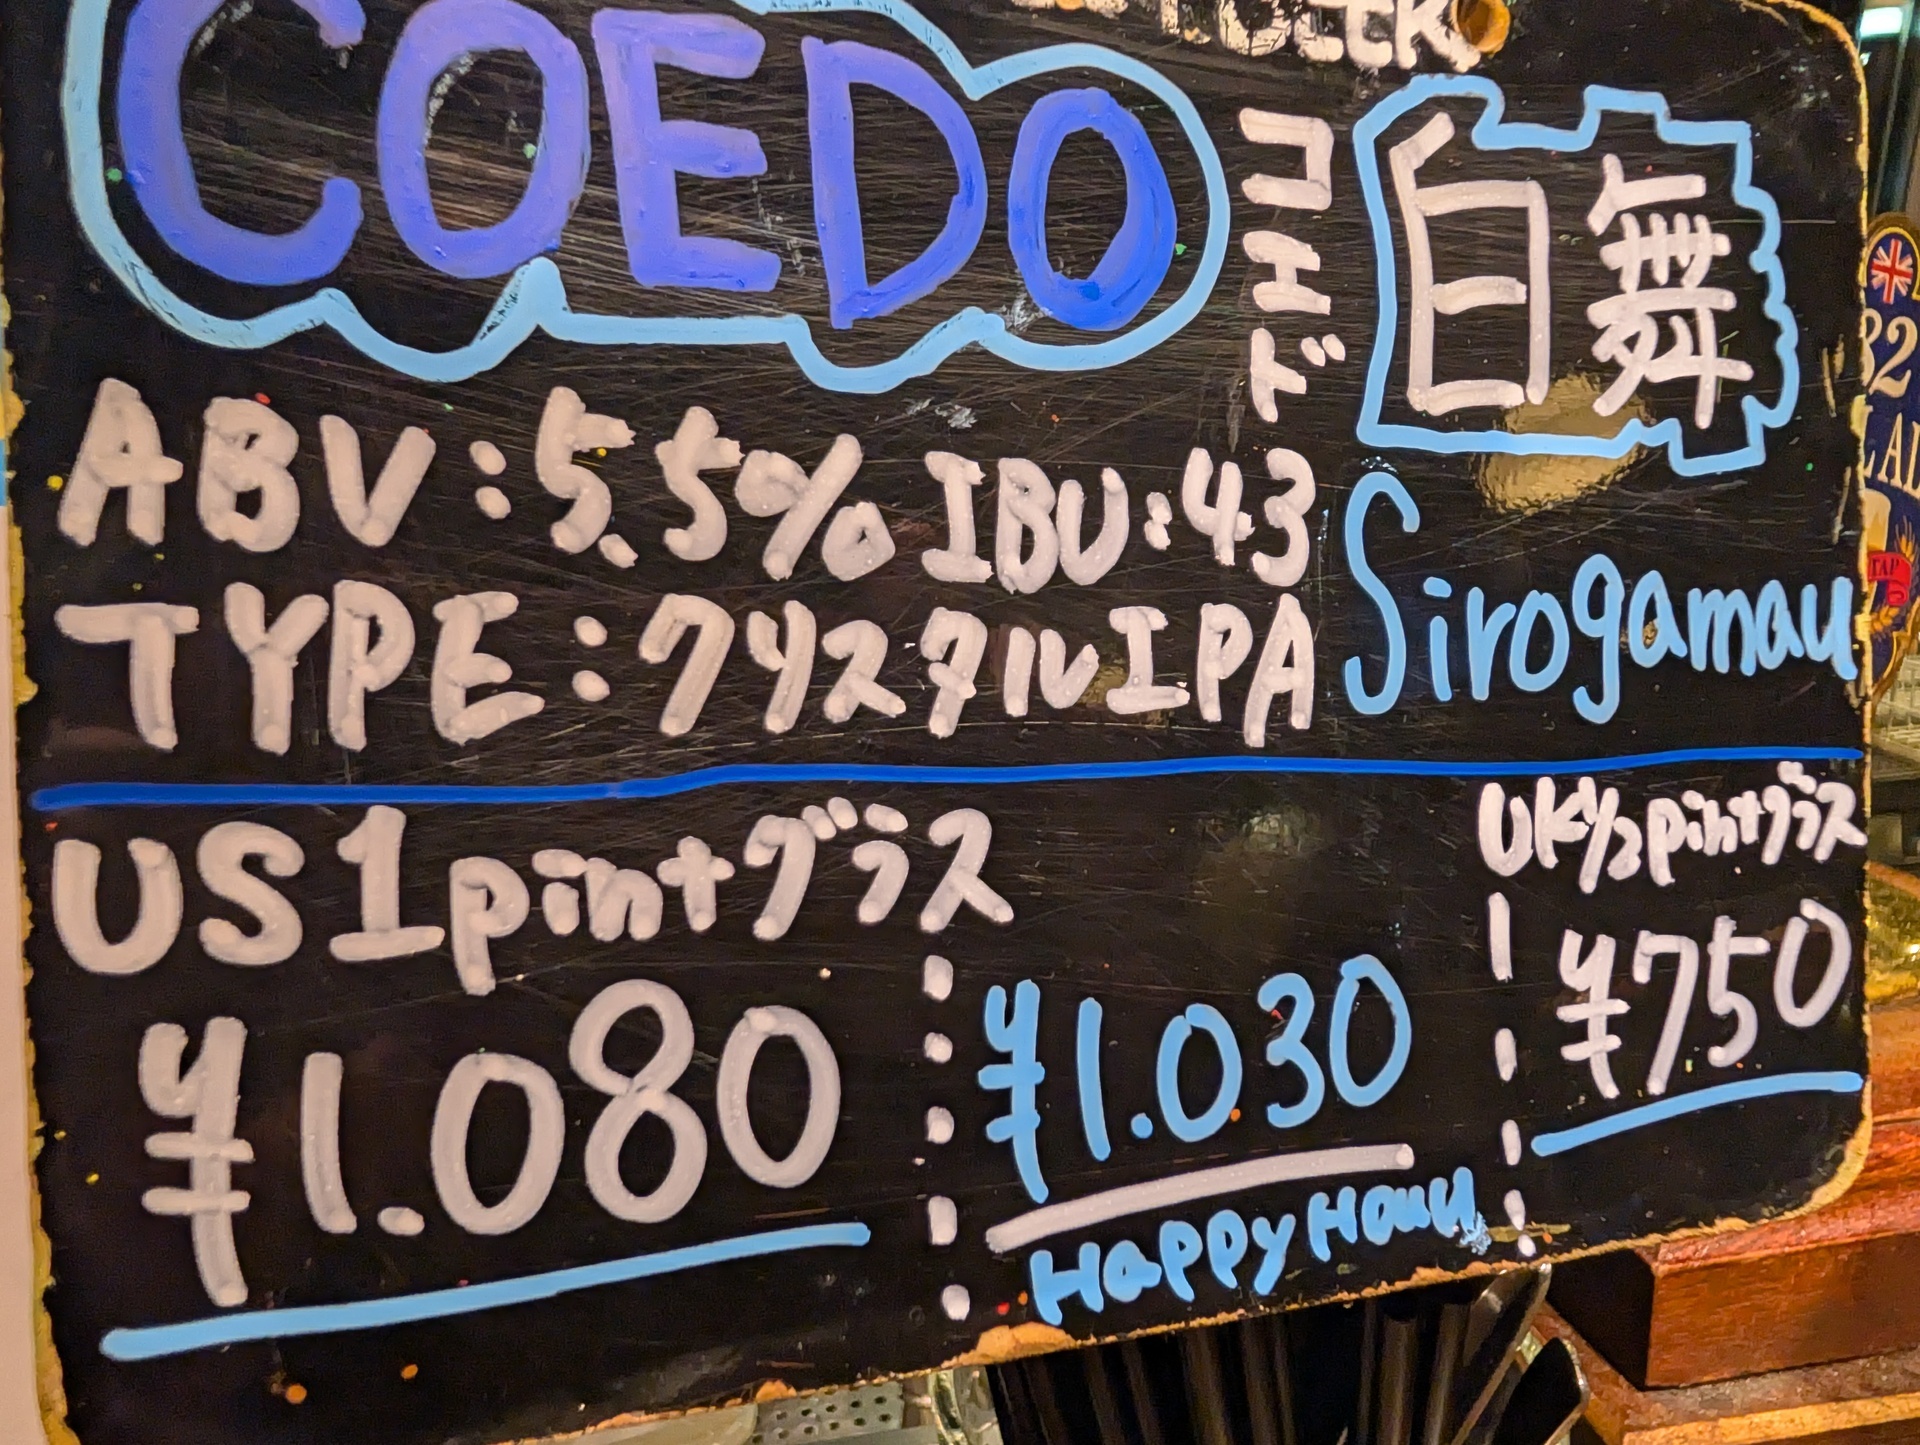 COEDO
コエド
白舞
ABV:5.5% IBU:43
TYPE:クリスタルIPA
Sirogamau
US1pintグラス
¥1.080
¥1.030
Happy Hour
UK1/2pintグラス
¥750